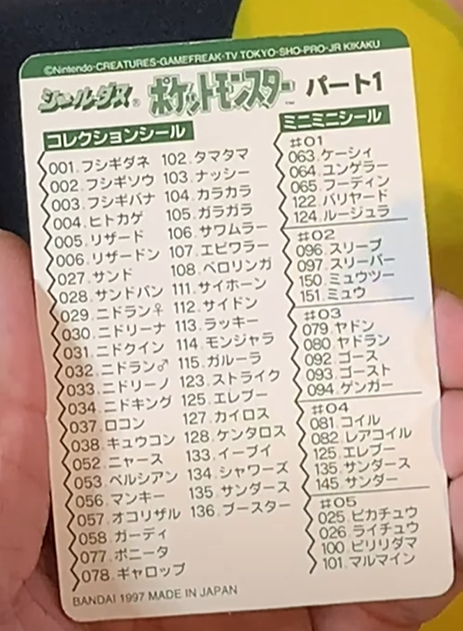 ©Nintendo·CREATURES·GAMEFREAK·TV TOKYO·SHO-PRO·JR KIKAKU
シールダス® ポケットモンスター™ パート1
コレクションシール
001.フシギダネ
002.フシギソウ
003.フシギバナ
004.ヒトカゲ
005.リザード
006.リザードン
027.サンド
028.サンドパン
029.ニドラン♀
030.ニドリーナ
031.ニドクイン
032.ニドラン♂
033.ニドリーノ
034.ニドキング
037.ロコン
038.キュウコン
052.ニャース
053.ペルシアン
056.マンキー
057.オコリザル
058.ガーディ
077.ポニータ
078.ギャロップ
102.タマタマ
103.ナッシー
104.カラカラ
105.ガラガラ
106.サワムラー
107.エビワラー
108.ベロリンガ
111.サイホーン
112.サイドン
113.ラッキー
114.モンジャラ
115.ガルーラ
123.ストライク
125.エレブー
127.カイロス
128.ケンタロス
133.イーブイ
134.シャワーズ
135.サンダース
136.ブースター
ミニミニシール
#01
063.ケーシィ
064.ユンゲラー
065.フーディン
122.バリヤード
124.ルージュラ
#02
096.スリープ
097.スリーパー
150.ミュウツー
151.ミュウ
#03
079.ヤドン
080.ヤドラン
092.ゴース
093.ゴースト
094.ゲンガー
#04
081.コイル
082.レアコイル
125.エレブー
135.サンダース
145.サンダー
#05
025.ピカチュウ
026.ライチュウ
100.ビリリダマ
101.マルマイン
BANDAI 1997 MADE IN JAPAN